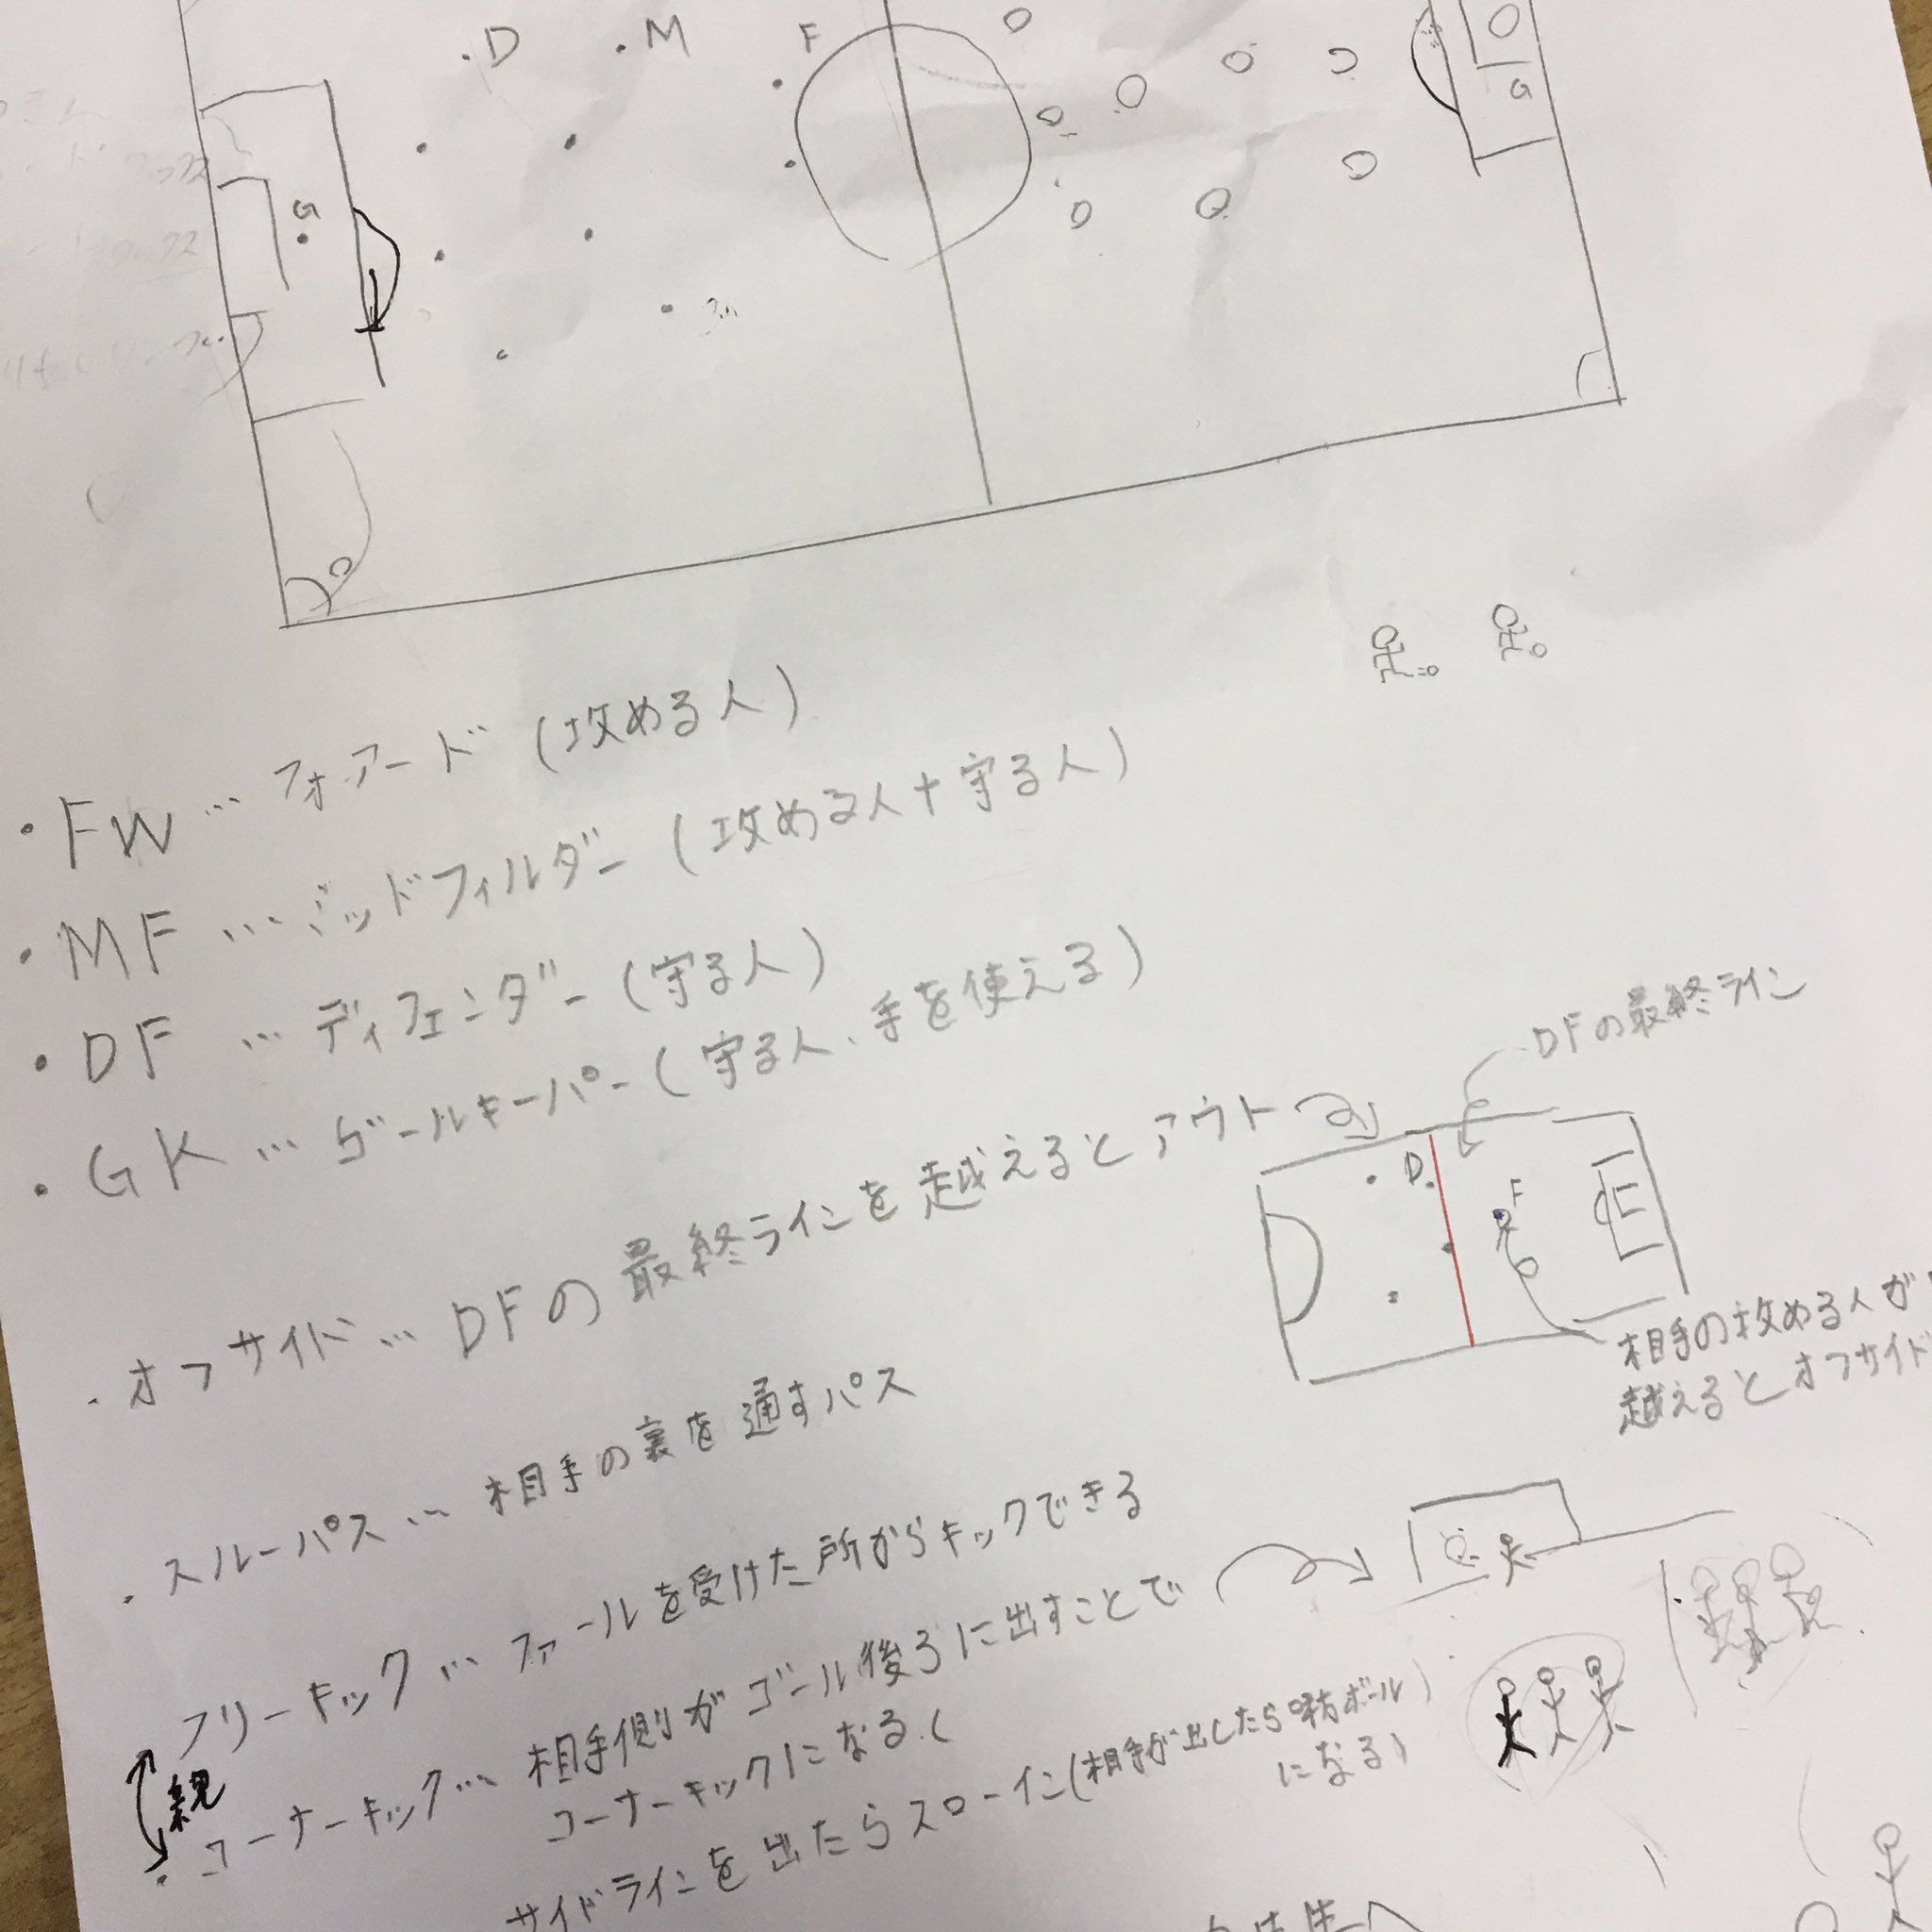 D M F
G
G
・FW…フォアード(攻める人)
・MF…ミッドフィルダー(攻める人+守る人)
・DF…ディフェンダー(守る人)
・GK…ゴールキーパー(守る人、手を使える)
DFの最終ライン
・オフサイド…DFの最終ラインを越えるとアウト
D
F
相手の攻める人が
越えるとオフサイド
・スルーパス…相手の裏を通すパス
フリーキック…ファールを受けた所からキックできる
・コーナーキック…相手側がゴール後ろに出すことで
コーナーキックになる(
サイドラインを出たらスローイン(相手が出したら味方ボール
になる)